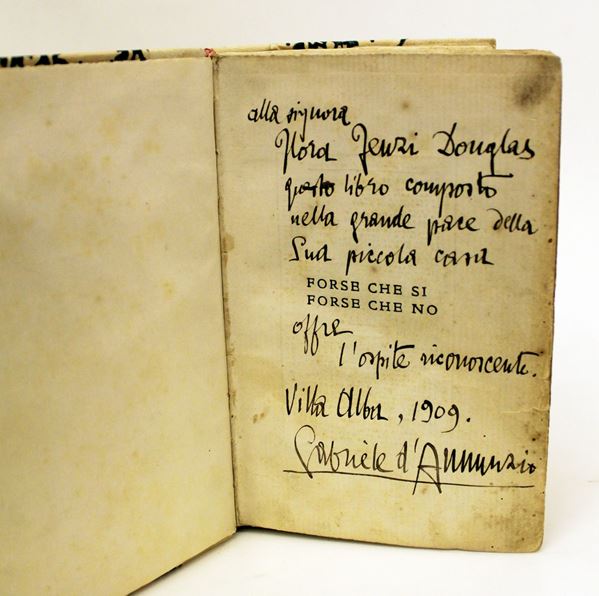 alla signora
Flora Fenzi Douglas
questo libro composto
nella grande pace della
Sua piccola casa
FORSE CHE SI
FORSE CHE NO
offre
l'ospite riconoscente.
Villa Alba, 1909.
Gabriele d'Annunzio